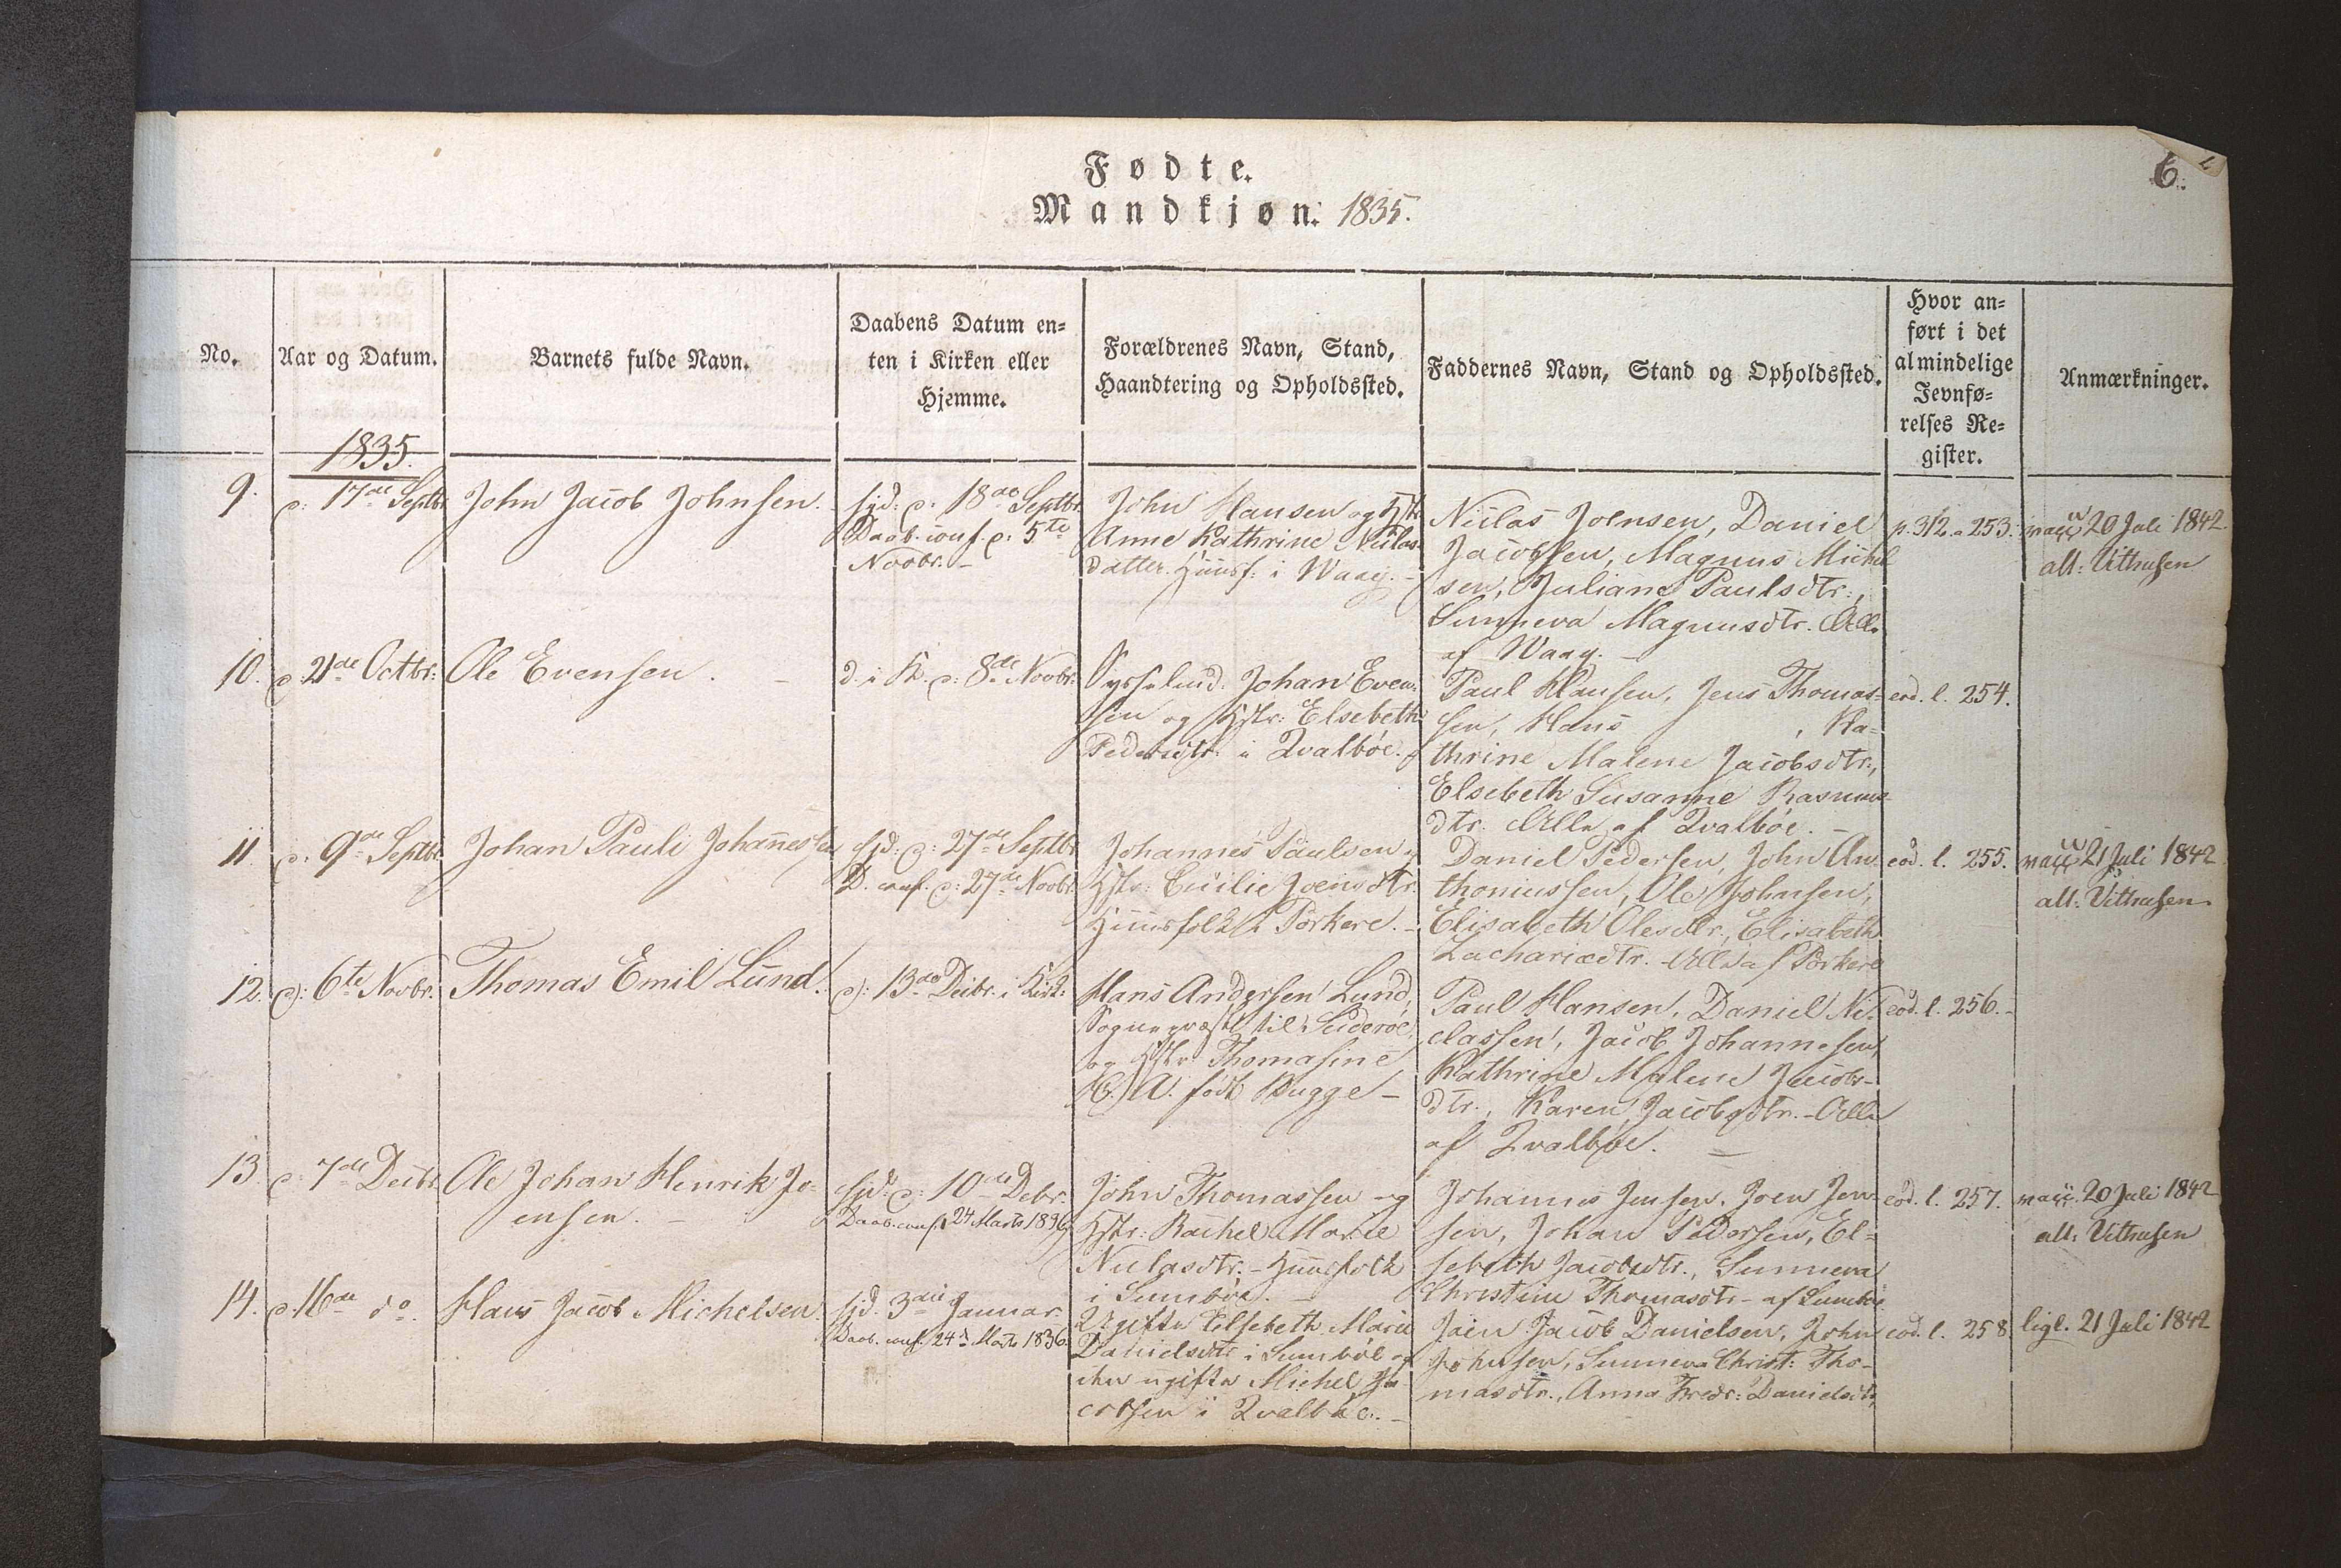 Fødte.
Mandkjøn. 1835.
6.
No.
Aar og Datum.
Barnets fulde Navn.
Daabens Datum en-
ten i Kirken eller
Hjemme.
Forældrenes Navn, Stand,
Haandtering og Opholdssted.
Faddernes Navn, Stand og Opholdssted.
Hvor an-
ført i det
almindelige
Jevnfø-
relses Re-
gister.
Anmærkninger.
1835.
9.
d: 17de Septbr.
John Jacob Johnsen.
hjd: d: 18de Septbr.
Daab. conf. d: 5te
Novbr. -
John Hansen og Hstr.
Anne Kathrine Niclas-
datter. Huusf: i Waag. -
Niclas Joensen, Daniel
Jacobsen, Magnus Michel-
sen, Juliane Paulsdtr.,
Sunneva Magnusdtr. Alle
af Waag. -
p. 312. a 253.
vacc 20 Juli 1842.
att: Vithusen
10.
d: 21de Octbr:
Ole Evensen. -
d. i K. d: 8de Novbr.
Sysselmd. Johan Even-
sen og Hstr: Elsebeth
Pedersdtr. i Qvalböe.
Paul Hansen, Jens Thomas-
sen, Hans , Ka-
thrine Malene Jacobsdtr.,
Elsebeth Susanne Rasmus-
dtr. Alle af Qvalböe. -
eod. l. 254.
11.
d. 9de Septbr.
Johan Pauli Johannessen
hjd: d: 27de Septbr
D. conf. d: 27de Novbr.
Johannes Paulsen og
Hstr: Cicilie Joensdtr.
Huusfolk i Porkere. -
Daniel Pedersen, John An-
thoniussen, Ole Johnsen,
Elisabeth Olesdtr., Elisabeth
Zachariædtr. - Alle af Porkere
eod. l. 255.
vacc 21 Juli 1842
att: Vithusen.
12.
d: 6te Novbr.
Thomas Emil Lund.
d: 13de Decbr. i Kirk:
Hans Andersen Lund,
Sognepræst til Suderöe,
og Hstr. Thomasine
C. A. födt Bugge -
Paul Hansen, Daniel Ni-
classen, Jacob Johannesen,
Kathrine Malene Jacobs-
dtr., Karen Jacobsdtr. - Alle
af Qvalböe. -
eod. l. 256. -
13.
d. 7de Decbr
Ole Johan Henrik Jo-
ensen. -
hjd: d: 10de Debr.
Daab. conf. 24 Marts 1836
John Thomassen og
Hstr: Rachel Marie
Niclasdtr. - Huusfolk
i Sumböe. -
Johannes Jensen, Joen Jen-
sen, Johan Pedersen, El-
sebeth Jacobsdtr., Sunneva
Christine Thomasdtr - af Sumböe
eod. l. 257.
vacc. 20 Juli 1842
att: Vithusen
14.
d. 16de do.
Hans Jacob Michelsen.
hjd. 3die Januar
Daab. conf. 24de Marts 1836.
Ugifte Elsebeth Marie
Danielsdtr i Sumböe og
den ugifte Michel Ja-
cobsen i Qvalböe. -
Joen Jacob Danielsen, John
Johnsen, Sunneva Christ: Tho-
masdtr., Anna Fredr: Danielsdtr,
eod. l. 258
ligl. 21 Juli 1842